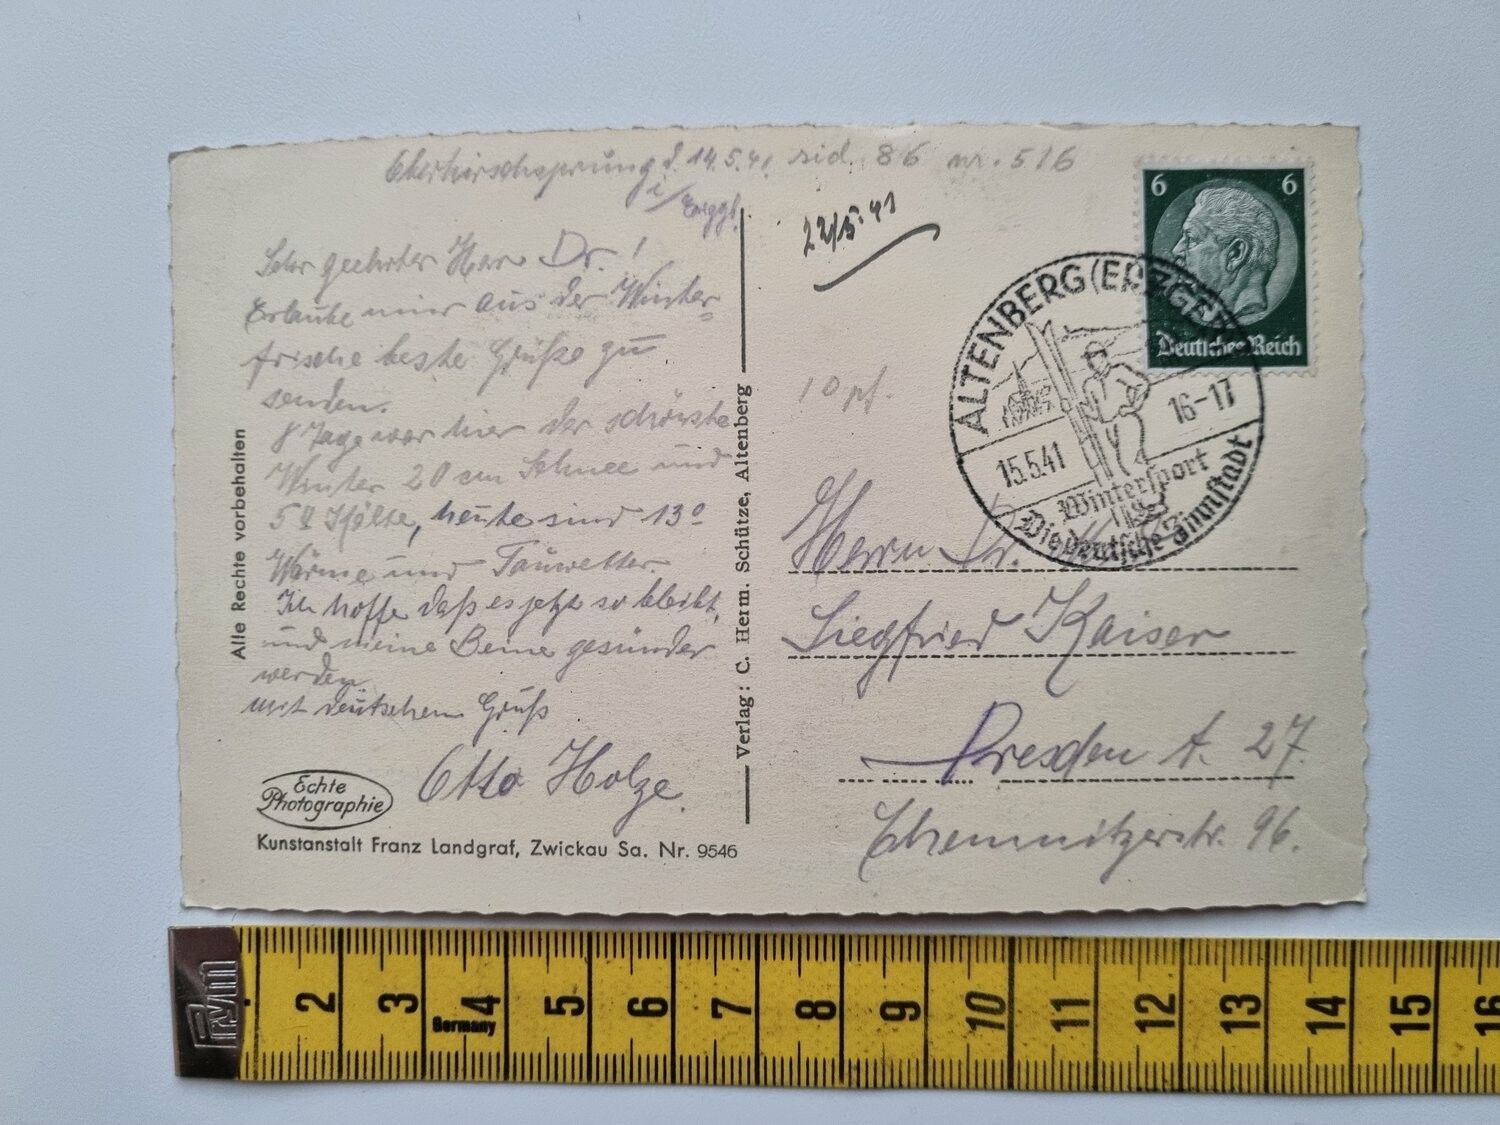 d. 14.5.41. 86 nr. 516
i/Erzgb.
22/5.41
Sehr geehrter Herr Dr.!
Erlaube mir aus der Winter=
frische beste Grüße zu
senden.
8 Tage war hier der schönste
Winter 20 cm Schnee und
5° Kälte, heute sind 13°
Wärme und Tauwetter.
Ich hoffe daß es jetzt so bleibt,
und meine Beine gesünder
werden
mit deutschem Gruß
Otto Holze.
Alle Rechte vorbehalten
Echte
Photographie
Kunstanstalt Franz Landgraf, Zwickau Sa. Nr. 9546
Verlag: C. Herm. Schütze, Altenberg
10 pf.
6 6
Deutsches Reich
ALTENBERG (ERZGEB
15.5.41 16-17
Wintersport
Die deutsche Zinnstadt
Herrn Dr.
Siegfried Kaiser
Dresden A. 27.
Chemnitzerstr. 96.
Prym
2 3 4 5 6 7 8 9 10 11 12 13 14 15 16
Germany